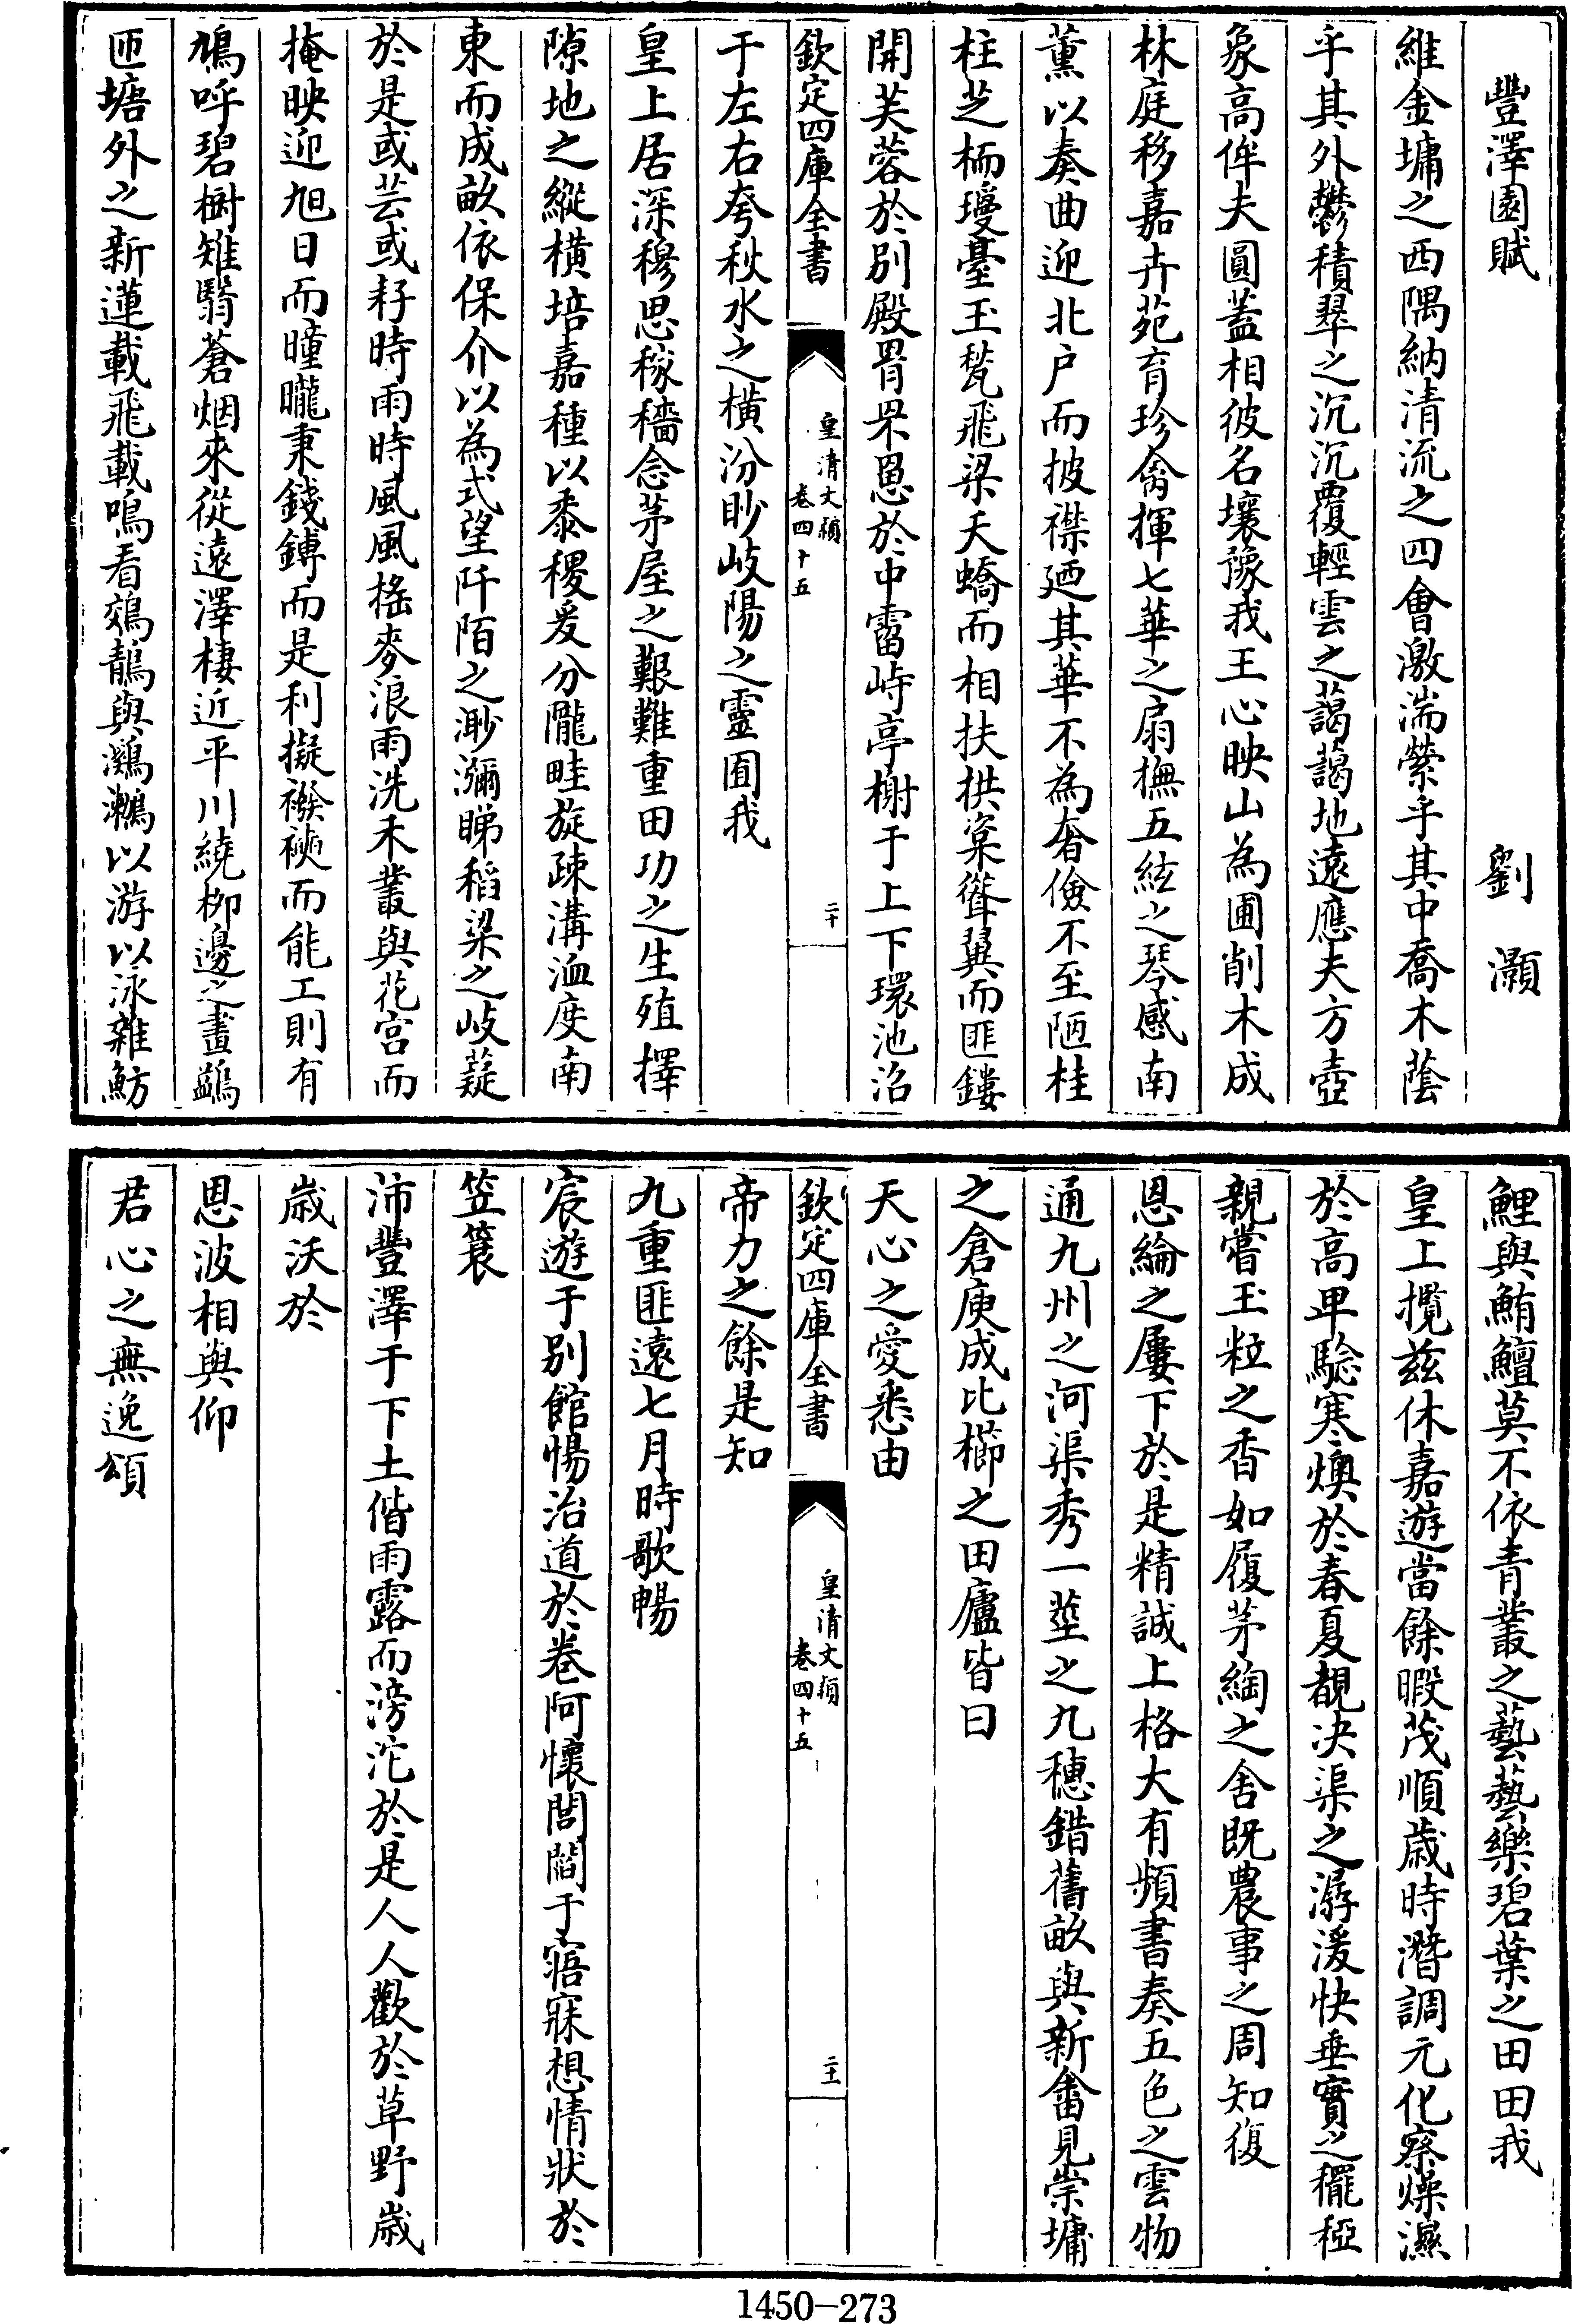 豐澤園賦　劉灝
維金墉之西隅納清流之四㑹激湍縈乎其中喬木䕃
乎其外鬱積翠之沉沉覆輕雲之藹藹地遠應夫方壺
象高侔夫圓蓋相彼名壤豫我王心映山為圃削木成
林庭移嘉卉苑育珍禽揮七華之扇撫五絃之琴感南
薰以奏曲迎北户而披襟廼其華不為奢儉不至陋桂
柱芝栭瓊臺玉甃飛梁夭蟜而相扶拱寀聳翼而匪鏤
開芙蓉於别殿罥罘罳於中霤峙亭榭于上下環池沼
欽定四庫全書　皇清文穎　卷四十五　二十
于左右夸秋水之橫汾眇岐陽之靈囿我
皇上居深穆思稼穡念茅屋之艱難重田功之生殖擇
隙地之縱橫培嘉種以黍稷爰分隴畦旋疎溝洫度南
東而成畝依保介以為式望阡陌之渺瀰睇稻粱之岐薿
於是或芸或耔時雨時風風搖麥浪雨洗禾叢與花宫而
掩映迎旭日而曈曨秉錢鎛而是利擬襏襫而能工則有
鳩呼碧樹雉翳蒼烟來從遠澤棲近平川繞栁邊之畫鷁
匝塘外之新蓮載飛載鳴看鵁鶄與鸂鶒以游以泳雜魴
鯉與鮪鱣莫不依青叢之藝藝樂碧葉之田田我
皇上攬兹休嘉遊當餘暇茂順歳時潛調元化察燥濕
於高卑騐寒燠於春夏覩决渠之潺湲快垂實之䆉稏
親嘗玉粒之香如履茅綯之舍既農事之周知復
恩綸之屢下於是精誠上格大有頻書奏五色之雲物
通九州之河渠秀一莖之九穗錯舊畝與新畬見崇墉
之倉庾成比櫛之田廬皆曰
天心之愛悉由
欽定四庫全書　皇清文穎　卷四十五　二十一
帝力之餘是知
九重匪遠七月時歌暢
宸遊于别館惕治道於卷阿懷閭閻于寤寐想情狀於
笠簑
沛豐澤于下土偕雨露而滂沱於是人人歡於草野歳
歳沃於
恩波相與仰
君心之無逸頌
1450—273